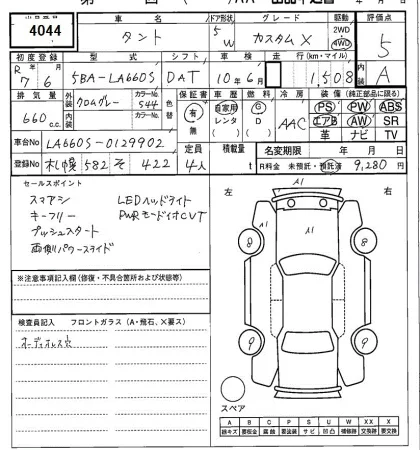 車名 ドア形状 グレード 駆動 評価点
4044 タント 5W カスタムX 2WD 4WD 5
初度登録 型式 シフト 車検 走行(km・マイル) 内装
R7年6月 5BA-LA660S DAT 10年6月 1,508 A
排気量 外装色 カラーNo. 色替 保証書 車歴 燃料 冷房 装備(純正部品に限る)
660c.c. クロムグレー 544 有 自家用 G AAC PS PW ABS
内装色 カラーNo. 無 レンタ D エアB AW SR
革 ナビ TV
車台No LA660S-0129902 定員 積載量 名変期限 年 月 日
登録No 札幌 582 そ 422 4人 t R料金 未預託・預託済 9,280円
セールスポイント
スマアシ LEDヘッドライト
キーフリー PWRモード付CVT
プッシュスタート
両側パワースライド
※注意事項記入欄(修復・不具合箇所および状態等)
検査員記入 フロントガラス(A・飛石、X要ス)
オーディオレス
左 右
A1
A1
8 8
9 9
スペア
A B C P S U W X XX
線キズ 要板金 腐蝕 要塗装 サビ 凹凸 補修跡 要交換 交換済